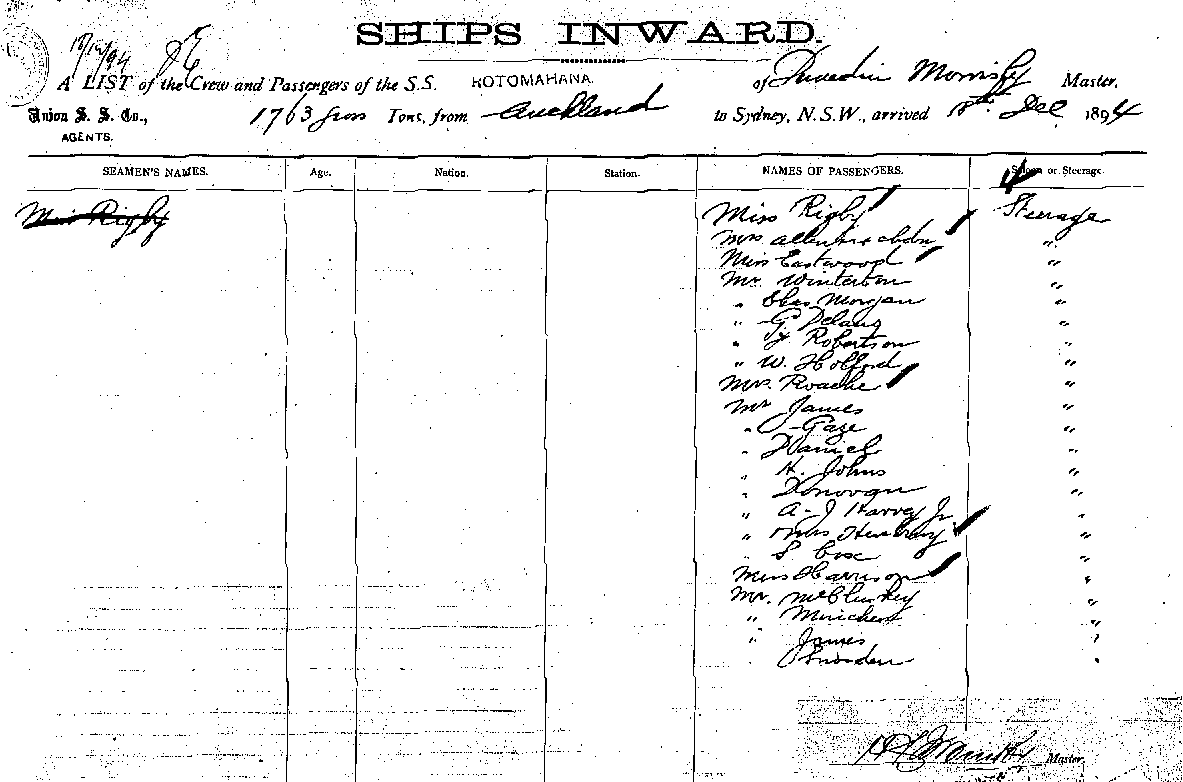 SHIPS INWARD.
A LIST of the Crew and Passengers of the S.S. ROTOMAHANA. of Dunedin Master.
Union S. S. Co., 1763 gross Tons, from Auckland to Sydney, N.S.W., arrived Dec 1894
AGENTS.
SEAMEN'S NAMES. Age. Nation. Station. NAMES OF PASSENGERS. Saloon or Steerage.
Miss Rigby Miss Rigby Steerage
Mrs "
Miss Eastwood "
Mr Winterton "
" Chas Morgan "
" G Delany "
" Robertson "
" W. Holford "
Mrs Roache "
Mr James "
" Gaze "
" Daniel "
" H. Johns "
" Donovan "
" A-J Harvey Jr "
" "
" S Cox "
Miss Harrison "
Mr. McCluskey "
" "
" James "
" Snowden "
Master.